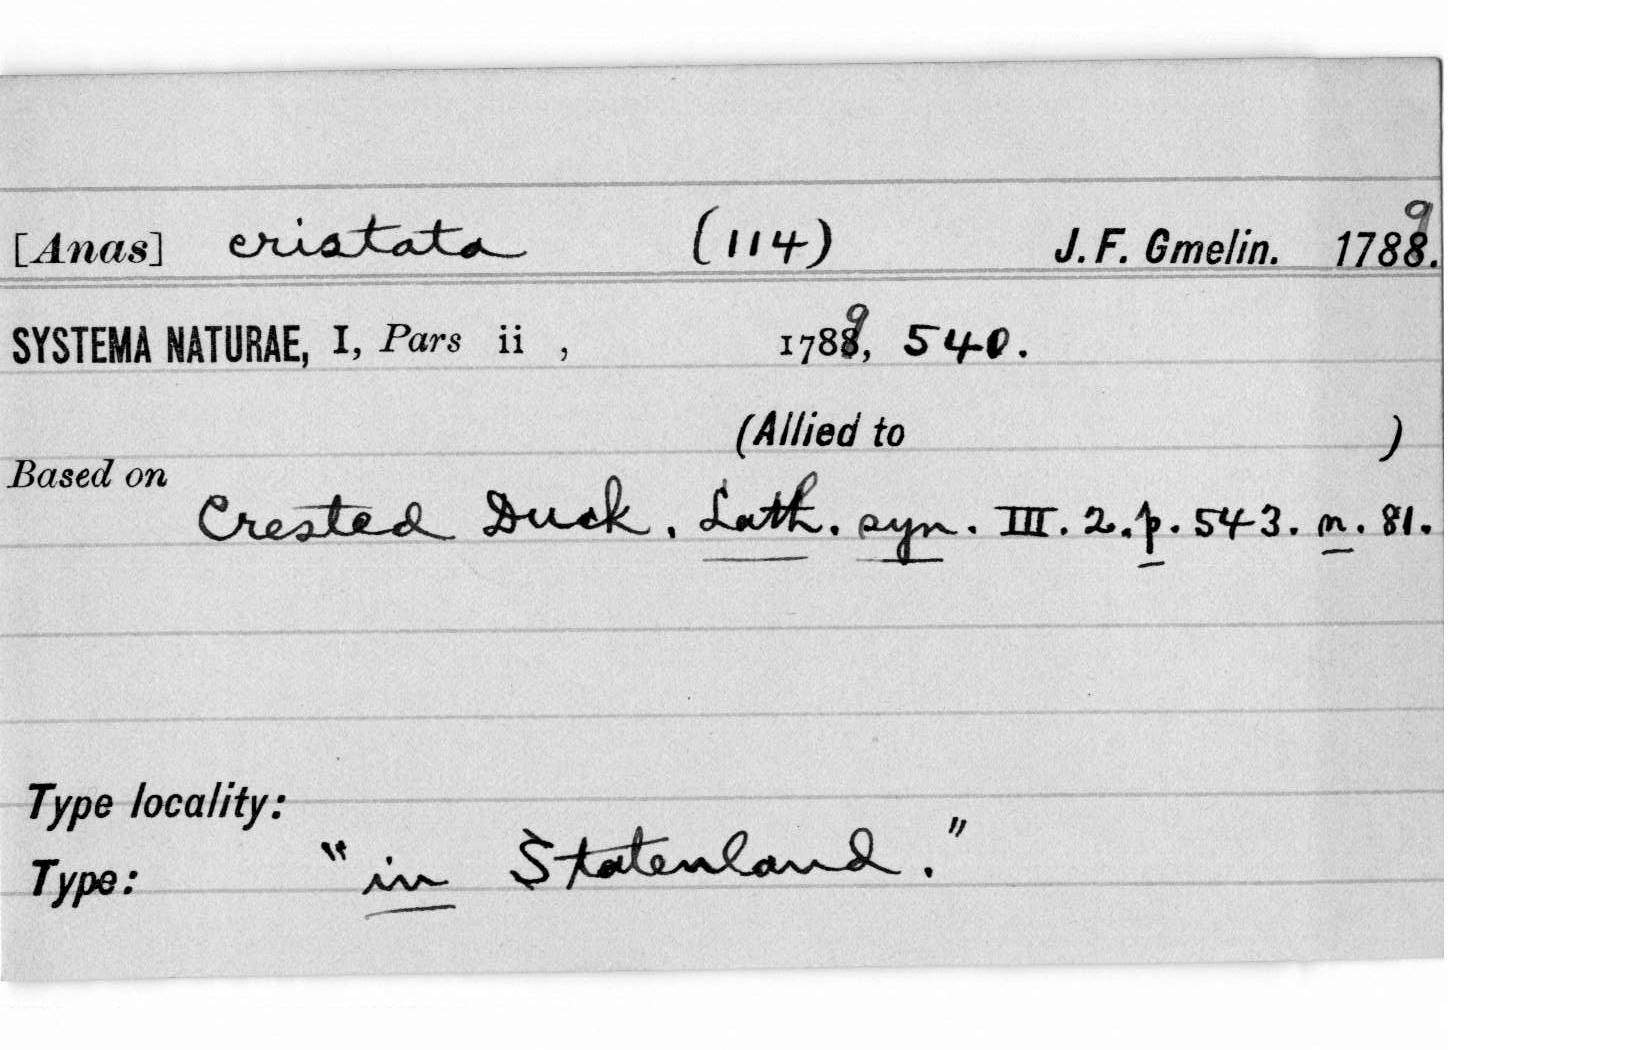 [Anas] cristata (114) J. F. Gmelin. 1789.
SYSTEMA NATURAE, I, Pars ii , 1789, 540.
(Allied to )
Based on
Crested Duck. Lath. syn. III. 2. p. 543. n. 81.
Type locality:
Type: "in Statenland."